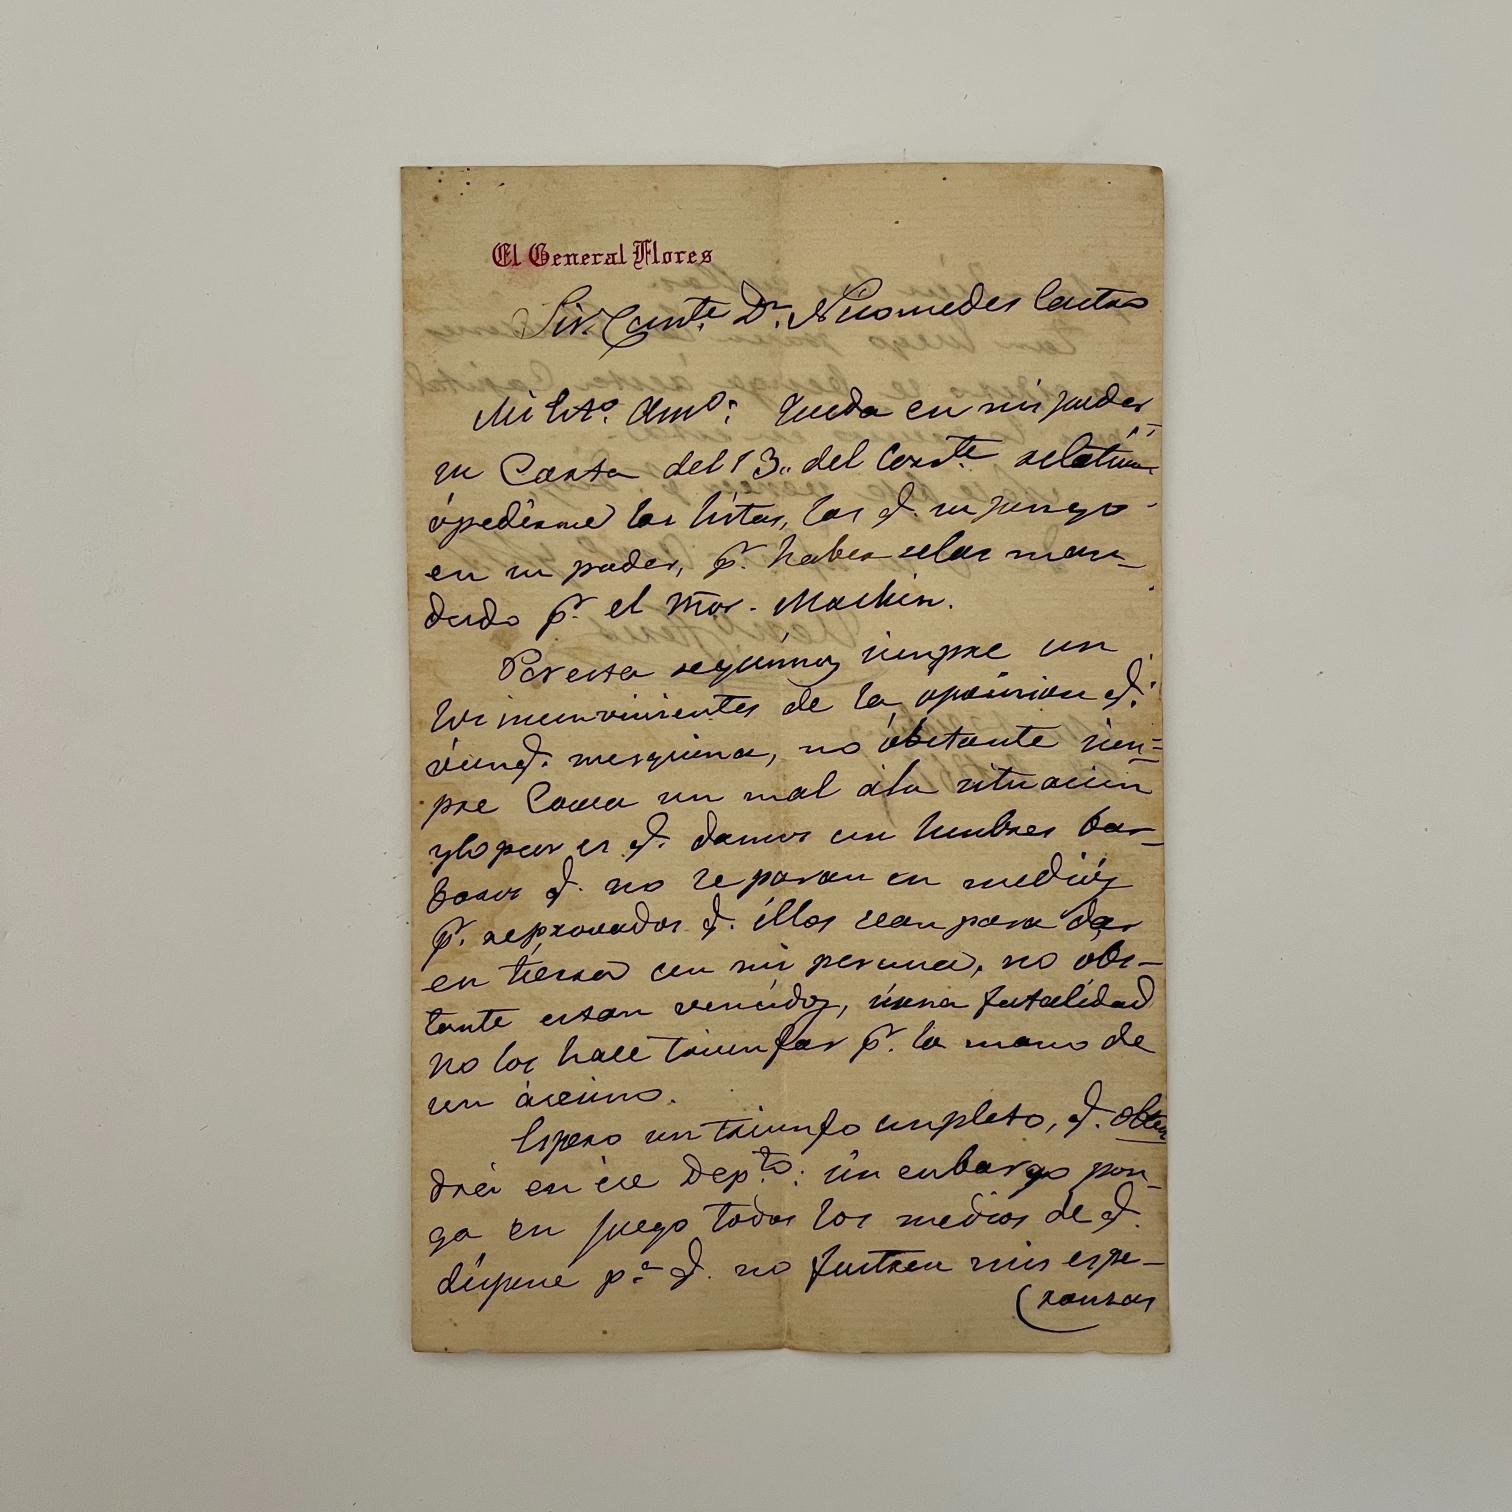 El General Flores
Sr. Comte. Dn. Nicomedes Castro
Mi Esto. Amo: Queda en mi poder
su Carta del 13,, del Corrte. relativa
ápedirme las listas, las q. supongo
en su poder, pr. haberselas man-
dado pr. el Mor. Machin.
Por esta seguimos siempre con
los inconvinientes de la oposision q.
áunq. mesquina, no óbstante siem=
pre Causa un mal ála situacion
ylo peor es q. damos con hombres bar-
baros q. no se paran en medios
pr. reprovados q. éllos sean para dar
en tierra con mi persona, no obs-
tante estan vencidos, si una fatalidad
no los hace triunfar pr. la mano de
un ásesino.
Espero un triunfo completo, q. obten
drá en ése Depto: sin embargo pon-
ga en juego todos los medios de q.
dispone pa. q. no fustren mis espe-
(ransas